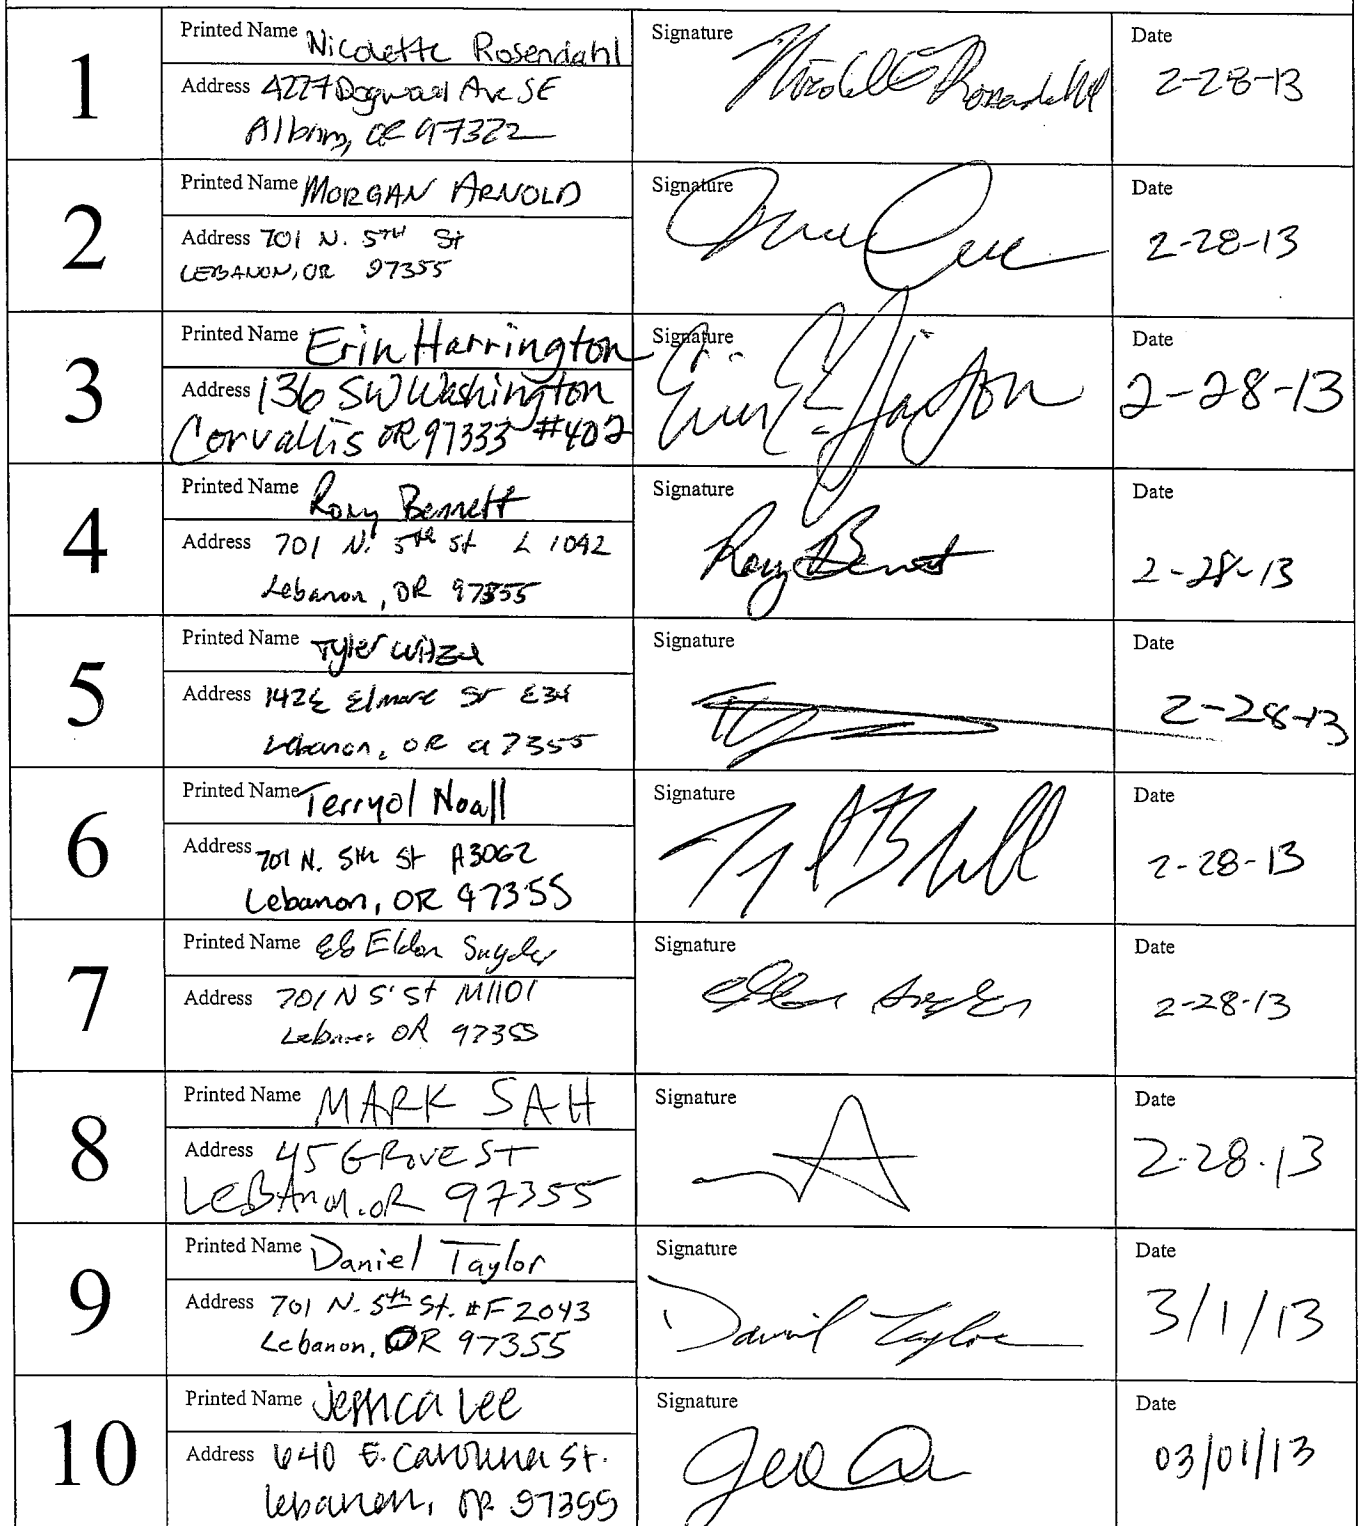 1
Printed Name Nicolette Rosendahl
Address 4227 Dogwood Ave SE
Albany, OR 97322
Signature Nicolette Rosendahl
Date
2-28-13
2
Printed Name MORGAN ARNOLD
Address 701 N. 5TH St
LEBANON, OR 97355
Signature
Date
2-28-13
3
Printed Name Erin Harrington
Address 136 SW Washington
Corvallis OR 97333 #402
Signature
Date
2-28-13
4
Printed Name Rory Bennett
Address 701 N. 5th St L 1042
Lebanon, OR 97355
Signature Rory Bennett
Date
2-28-13
5
Printed Name Tyler
Address St E34
Lebanon, OR 97355
Signature
Date
2-28-13
6
Printed Name Terryol Noall
Address 701 N. 5th St A3062
Lebanon, OR 97355
Signature
Date
2-28-13
7
Printed Name Eldon Snyder
Address 701 N 5' St M1101
Lebanon OR 97355
Signature Eldon Snyder
Date
2-28-13
8
Printed Name MARK SAH
Address 45 GROVE ST
LEBANON. OR 97355
Signature
Date
2-28-13
9
Printed Name Daniel Taylor
Address 701 N. 5th St. #F2043
Lebanon, OR 97355
Signature Daniel Taylor
Date
3/1/13
10
Printed Name Jessica Lee
Address 640 E. Carolina St.
Lebanon, OR 97355
Signature
Date
03/01/13